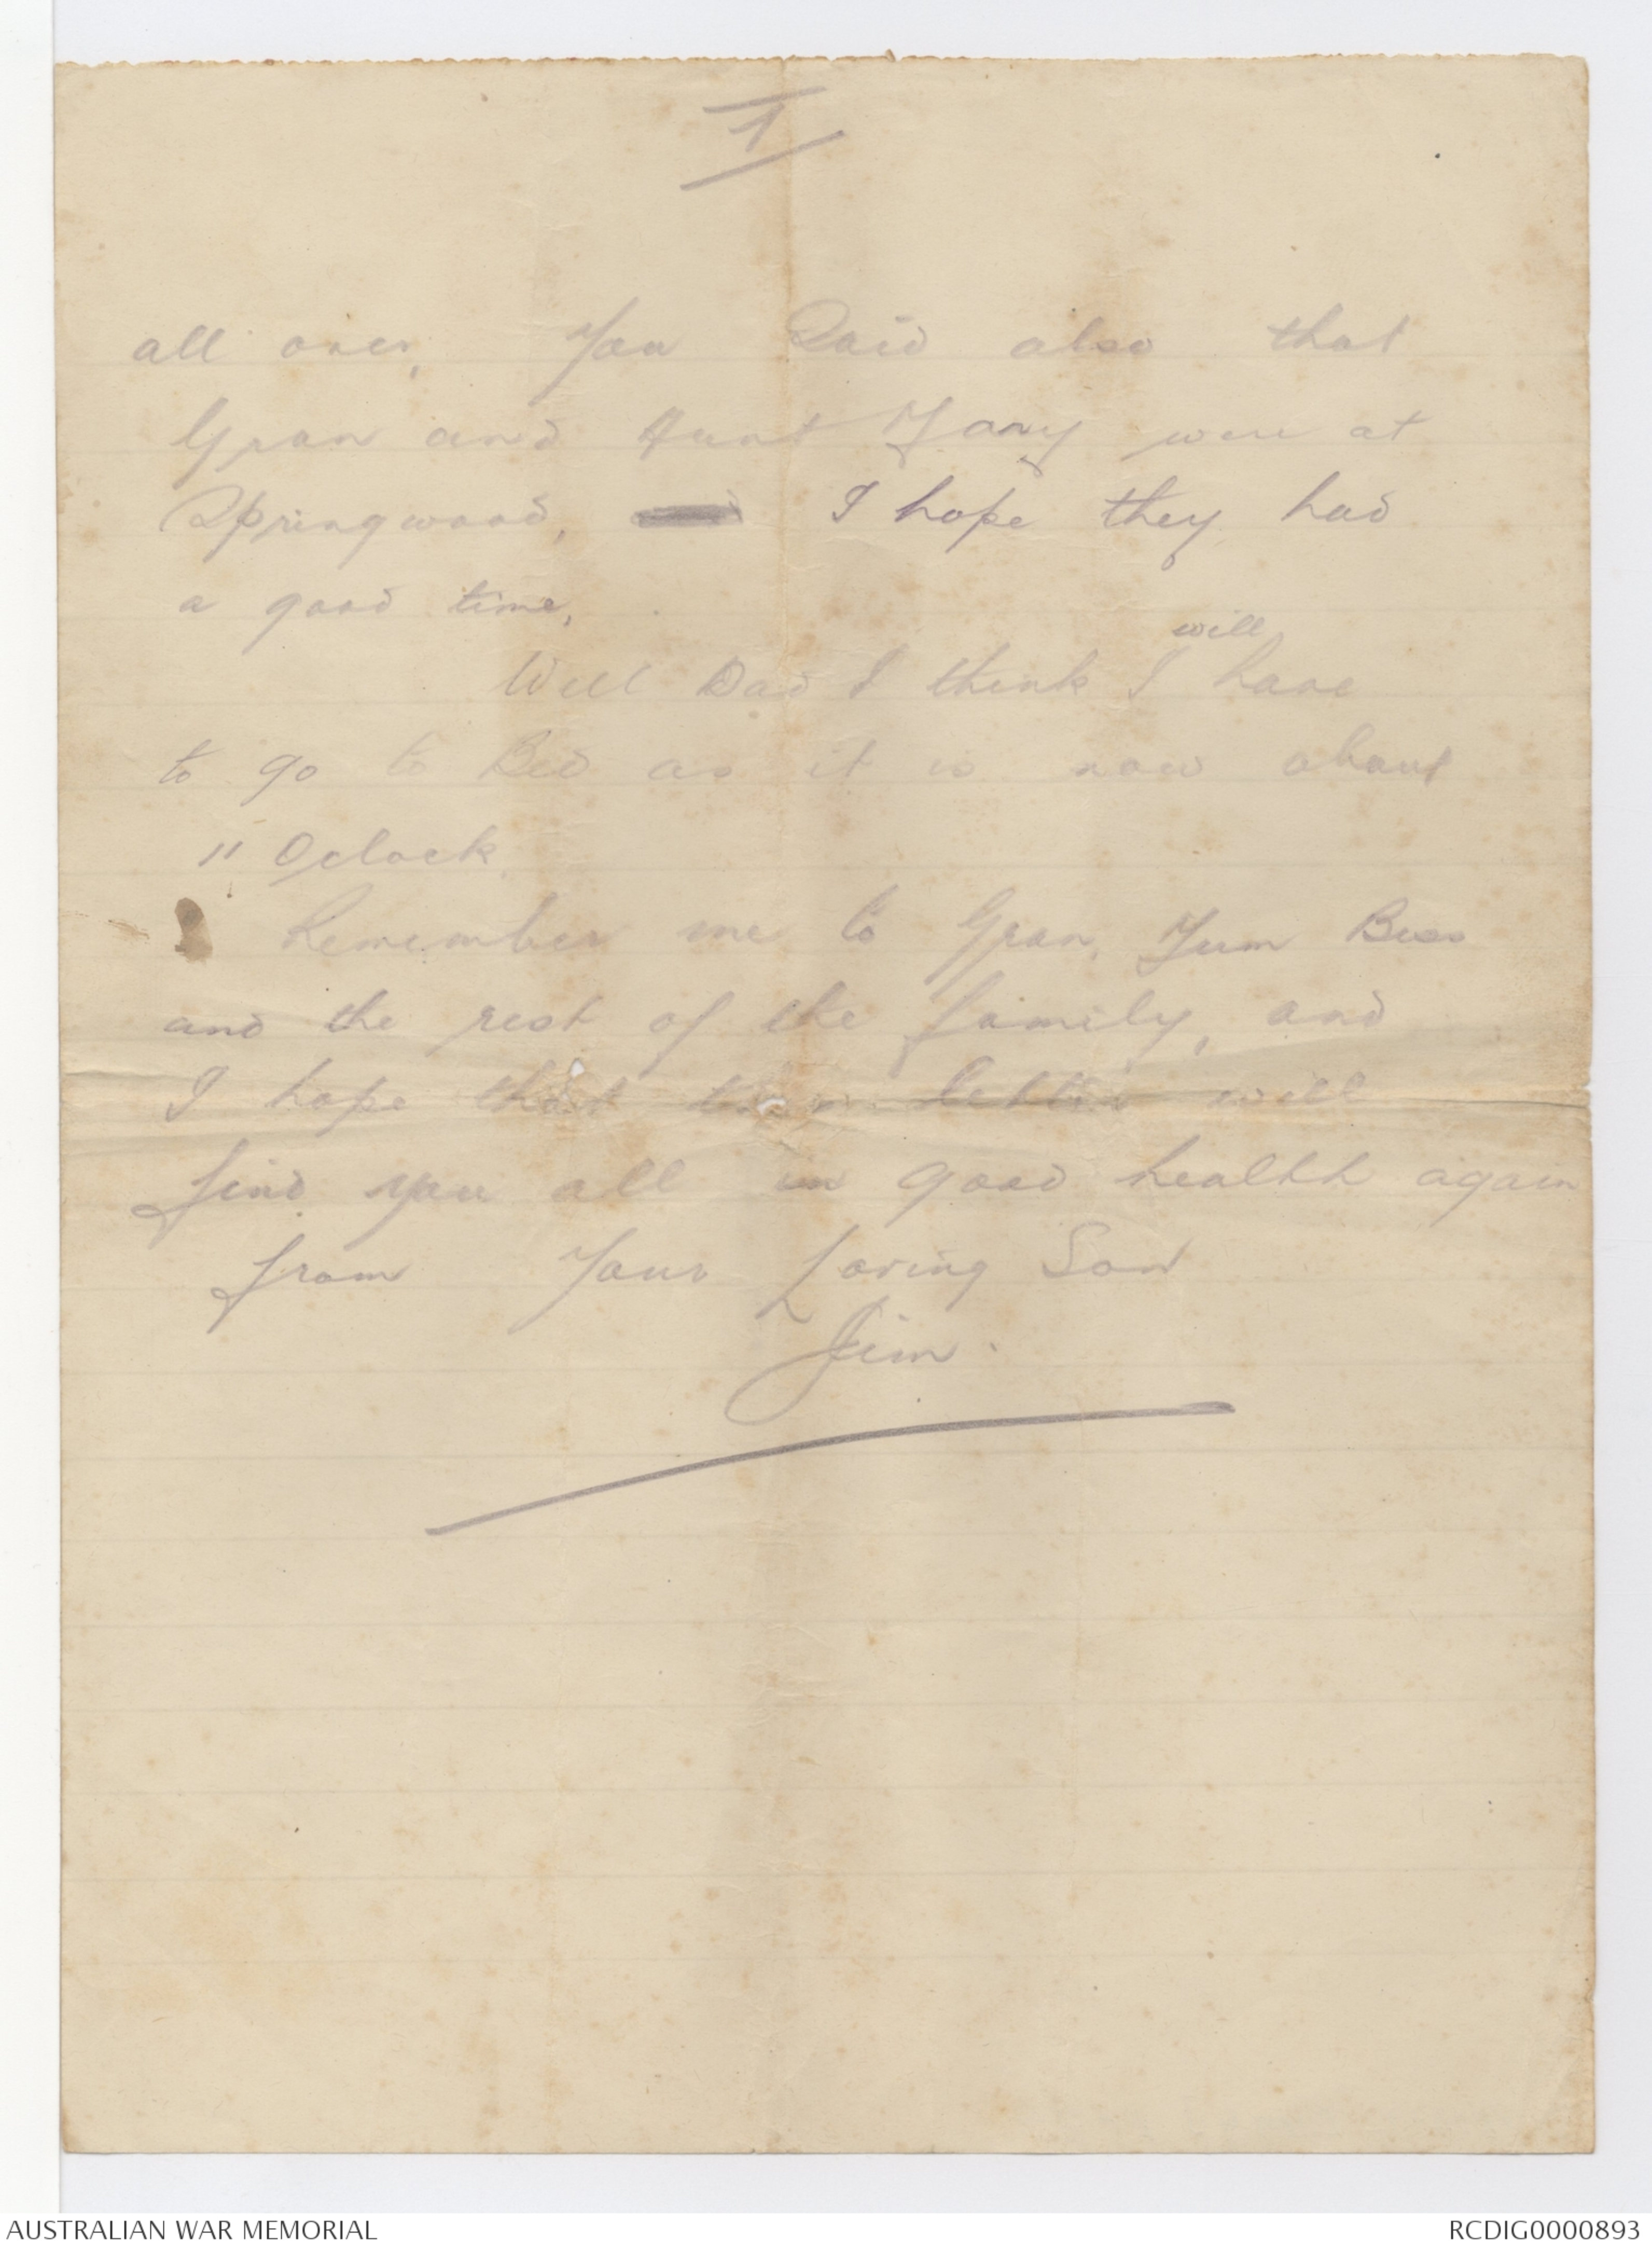 all over, You Said also that
Gran and Aunt were at
Springwood, I hope they had
a good time,
will
Well Dad I think I have
to go to Bed as it is now about
11 Oclock
Remember me to Gran, Bess
and the rest of the family, and
I hope that this letter will
find you all in good health again
from Your Loving Son
Jim.
AUSTRALIAN WAR MEMORIAL
RCDIG0000893